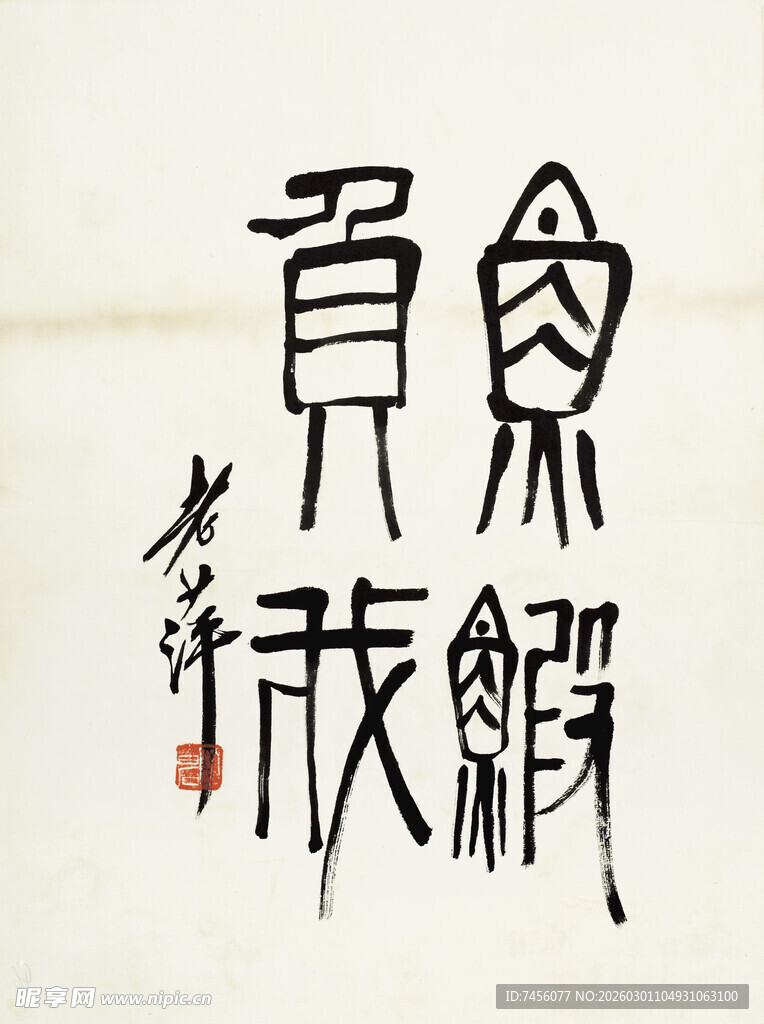 魚鰕
負我
老萍
昵享网 www.nipic.cn
ID:7456077 NO:20260301104931063100